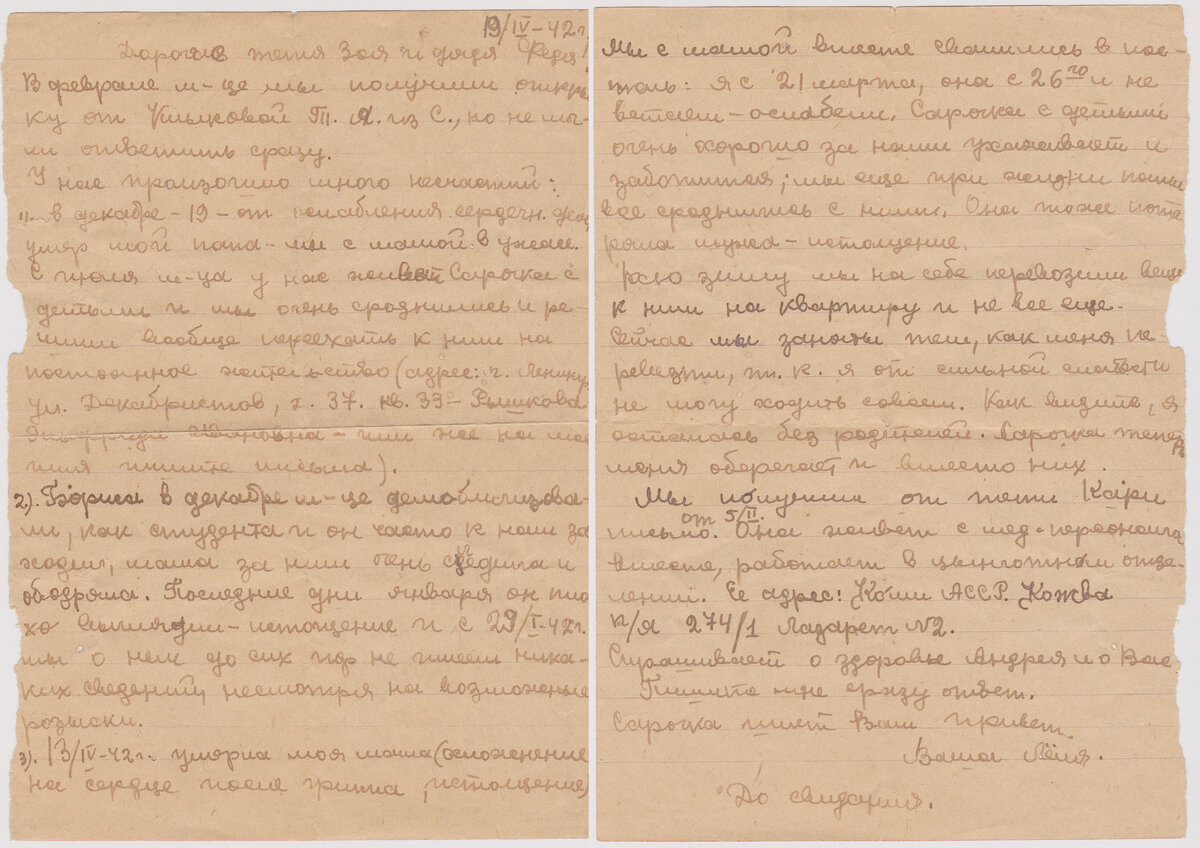 19/IV-42 г.
Дорогие тетя Зоя и дядя Федя!
В феврале м-це мы получили открыт-
ку от Кильковой Т. Я. из С., но не мог-
ли ответить сразу.
У нас произошло много несчастий:
1). в декабре -19- от ослабления сердечн. деят.
умер мой папа - мы с мамой в ужасе.
С июля м-ца у нас живет Сарочка с
детьми и мы очень сроднились и ре-
шили вообще переехать к ним на
постоянное жительство (адрес: г. Ленинг.
ул. Декабристов, д. 37. кв. 33 - Рыжикова
Ивановна - или же на мое
имя пишите письма).
2). Бориса в декабре м-це демобилизова-
ли, как студента и он часто к нам за-
ходил, мама за ним очень следила и
ободряла. Последние дни января он пло-
хо выглядил - истощение и с 29/I-42 г.
мы о нем до сих пор не имеем ника-
ких сведений, несмотря на возможные
розыски.
3). 13/IV-42 г. умерла моя мама (осложнение
на сердце после гриппа, истощение)
Мы с мамой вместе свалились в пос-
тель: я с 21 марта, она с 26го и не
встаем - ослабели. Сарочка с детьми
очень хорошо за нами ухаживает и
заботится; мы еще при жизни папы
все сроднились с ними. Она тоже поте-
ряла мужа - истощение.
Всю зиму мы на себе перевозили вещи
к ним на квартиру и не все еще.
Сейчас мы заняты тем, как меня пе-
ревезти, т. к. я от сильной слабости
не могу ходить совсем. Как видите, я
осталась без родителей. Сарочка тепе
рь
меня оберегает и вместо них.
Мы получили от тети Кари
письмо от 5/II. Она живет с мед-персоналом
вместе, работает в цынготном отде-
лении. Ее адрес: Коми АССР. Кожва
п/я 274/1 Лазарет №2.
Спрашивает о здоровье Андрея и о Вас
Пишите мне сразу ответ.
Сарочка шлет Вам привет.
Ваша Лёля.
До свидания.